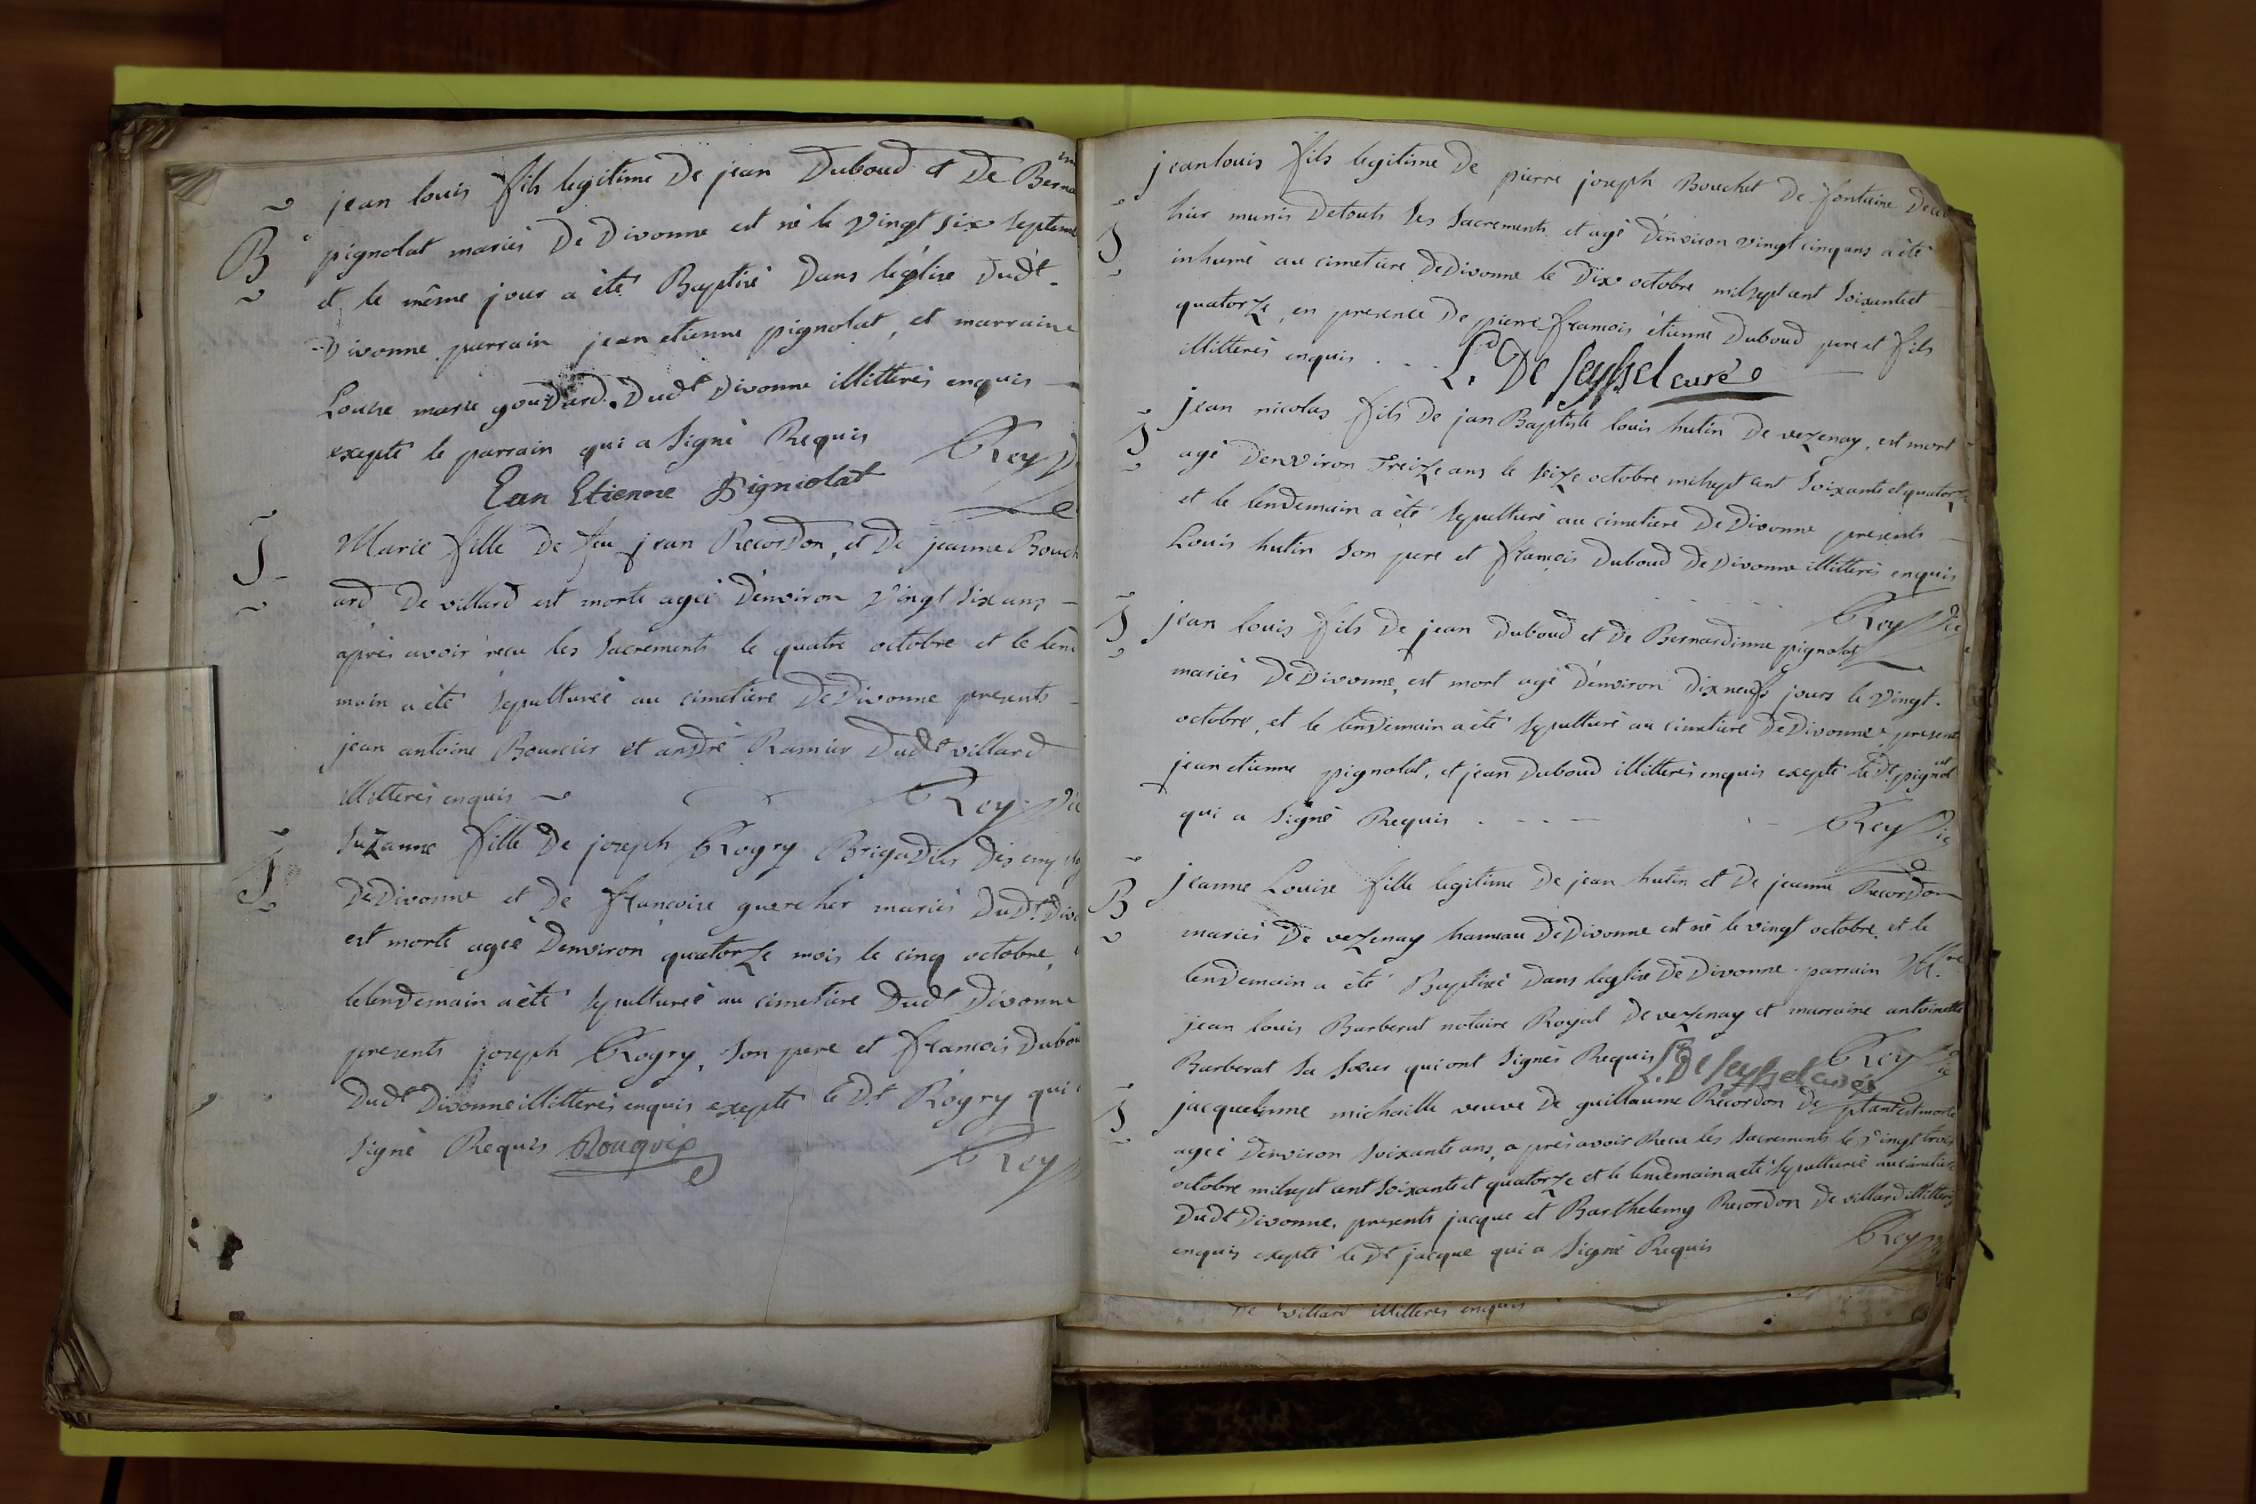 jean louis fils legitime De jean Duboud et De Berna
B pignolat mariés De Divonne est né le vingt six septem
et le même jour a été Baptisé Dans léglise Dudt
Divonne parrain jean etienne pignolat, et marraine
Louise marie gourdard Dudt Divonne illitterés enquis
exepté le parrain qui a signé Requis Rey
Ean Etienne Pigniolat
S Marie fille De feu jean Recordon, et De jeanne Bouch
ard De villard est morte ageé D'environ vingt six ans
aprés avoir recu les sacrements le quatre octobre et le len
main a été sepulturéé au cimetiere De Divonne presents
jean antoine Bourcier et andré Ramier Dudt villard
illitterés enquis Rey vic
S suzanne fille De joseph Rogry Brigadier Des emplo
De Divonne et De francoise quercher mariés Dudt Divo
est morte ageé Denviron quatorze mois le cinq octobre,
le lendemain a été sepultureé au cimetiere Dudt Divonne
presents joseph Rogry, son pere et francois Dubou
Dudt Divonne illitterés enquis exepté le Dt Rogry qui
signé Requis Rouguié
Rey
jean louis fils legitime De pierre joseph Bouchet De fontaine
S hier munis De touts ses sacrements et agé D'environ vingt cinq ans a été
inhumé au cimetiere De Divonne le Dix octobre mil sept cent soixante et
quatorze, en presence De pierre francois étienne Duboud pere et fils
illitterés enquis . . . L. De Seyssel curé
S jean nicolas fils De jan Baptiste louis hutin De vezenay, est mort
agé D'environ Treize ans le seize octobre mil sept cent soixante et quatorze
et le lendemain a été sepulturé au cimetiere De Divonne presents
Louis hutin son pere et francois Duboud De Divonne illitterés enquis
Rey vic
S jean louis fils De jean Duboud et De Bernardinne pignolat
mariés De Divonne, est mort agé D'environ Dix neufs jours le vingt
octobre, et le lendemain a été sepulturé au cimetiere De Divonne, present
jean etienne pignolat, et jean Duboud illitterés enquis exepté le Dt pignolat
qui a signé Requis . . . Rey vic
B jeanne Louise fille legitime De jean hutin et De jeanne Recordon
mariés De vezenay hameau De Divonne est né le vingt octobre, et le
lendemain a été Baptiséé Dans leglise De Divonne. parrain Mtre
jean louis Barberat notaire Royal De vezenay et marraine antoinette
Barberat sa sœur qui ont signés Requis L. De Seyssel curé Rey vic
S jacquelinne michaille veuve De guillaume Recordon De plan est morte
ageé Denviron soixante ans, aprés avoir Recu les sacrements le vingt trois
octobre mil sept cent soixante et quatorze et le lendemain a été sepulturéé au cimetiere
Dudt Divonne, presents jacque et Barthelemy Recordon De villard illitterés
enquis exepté le Dt jacque qui a signé Requis Rey
De villard illitterés enquis